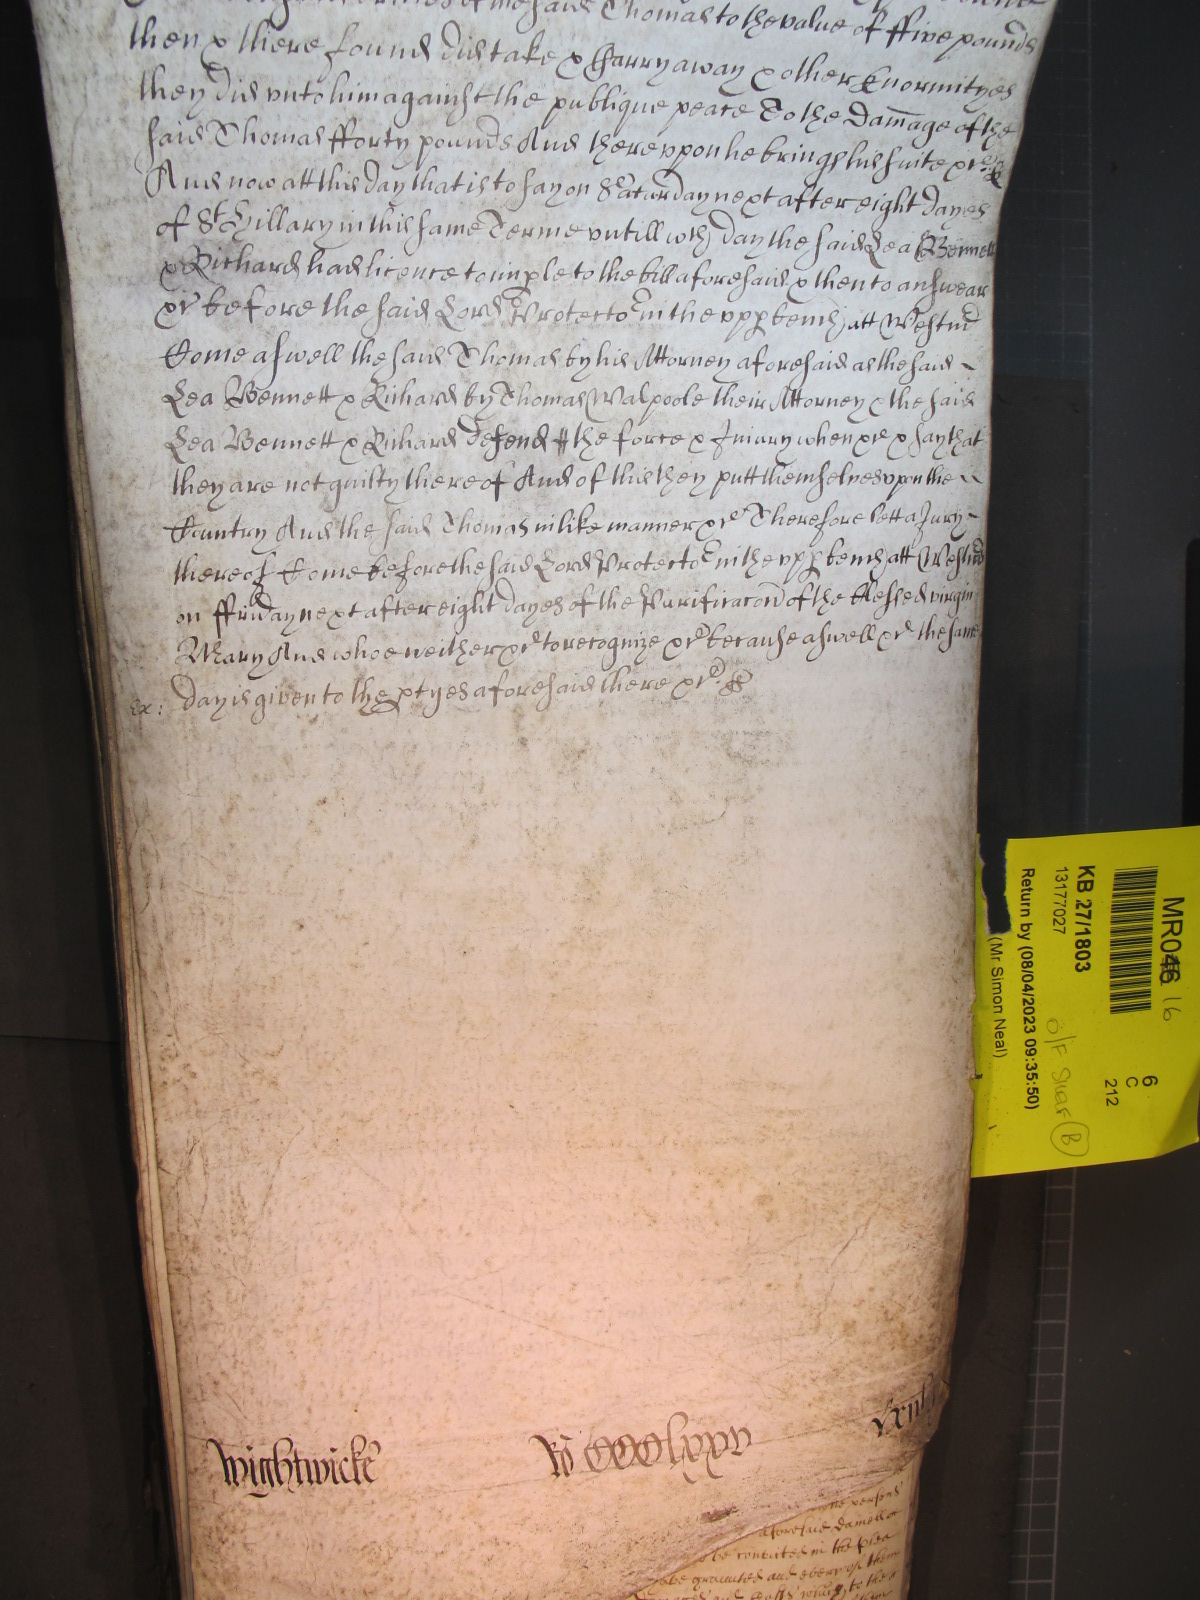 of the said Thomas to the value of ffive pounds
then & there found did take & Carry away & other Enormityes
they did vnto him against the publique peace To the Damage of the
said Thomas fforty pounds And therevpon he brings his suite &c
And now att this day that is to say on Saturday next after eight dayes
of St Hillary in this same Terme vntill wch day the said Lea Bennett
& Richard had licence to imple to the bill aforesaid & then to answear
&c before the said Lord Protector in the vpp bench att Westm
Come aswell the said Thomas by his Attorney aforesaid as the said
Lea Bennett & Richard by Thomas Walpoole their Attorney & the said
Lea Bennett & Richard defend the force & Iniury when &c & say that
they are not guilty thereof And of this they putt themselves vpon the
Country And the said Thomas in like manner &c Therefore lett a Jury
thereof Come before the said Lord Protector in the vpp bench att Westm
on ffriday next after eight dayes of the Purificacon of the blessed virgin
Mary And whoe neither &c to recognize &c because aswell &c the same
day is given to the ptyes aforesaid there &c
Ex:
Wightwicke
Ro CCCClxxv
aforesaid
be convicted in the plea
MR046 16
KB 27/1803
13177027
Return by (08/04/2023 09:35:50)
(Mr Simon Neal)
6
C
212
O/F Shelf B